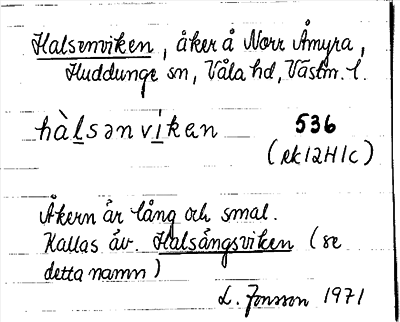 Halsenviken, åker å Norr Åmyra,
Huddunge sn, Våla hd, Västm. l.
hàlsənvikan 536
(rk 12H1c)
Åkern är lång och smal.
Kallas äv. Halsängsviken (se
detta namn)
L. Jonsson 1971